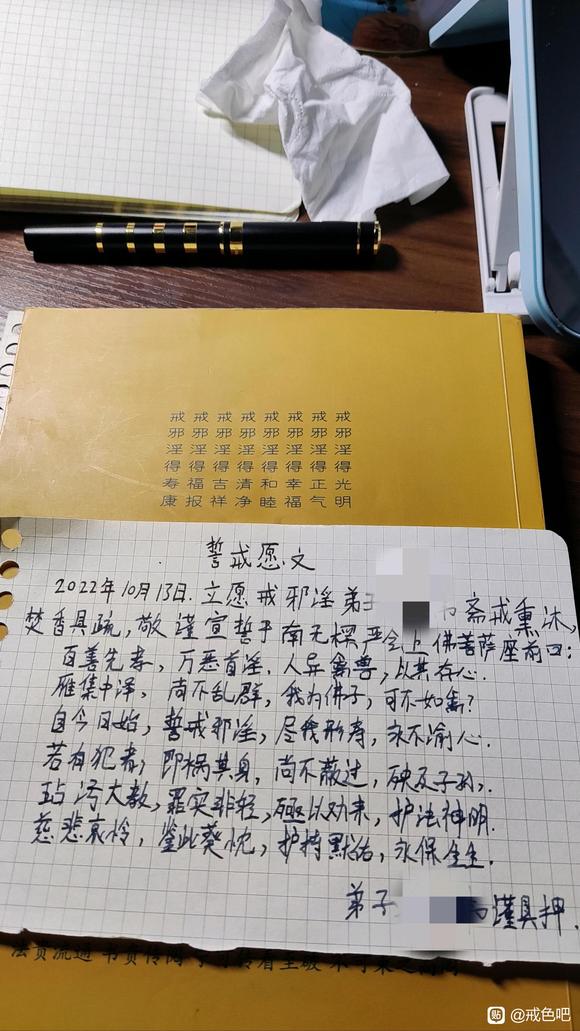 戒邪淫得光明
戒邪淫得正气
戒邪淫得幸福
戒邪淫得和睦
戒邪淫得清净
戒邪淫得吉祥
戒邪淫得福报
戒邪淫得寿康
誓戒愿文
2022年10月13日.立愿戒邪淫弟子 斋戒熏沐,
焚香具疏,敬谨宣誓于南无楞严会上佛菩萨座前曰:
百善先孝,万恶首淫.人异禽兽,以其存心.
雁集中泽,尚不乱群,我为佛子,可不如禽?
自今日始,誓戒邪淫,尽我形寿,永不渝心.
若有犯者,即祸其身,尚不蔽过,殃及子孙.
玷污大教,罪实非轻,殛以劝来,护法神明.
慈悲哀怜,鉴此葵忱,护持默佑,永保生生.
弟子 谨具押.
贴 @戒色吧